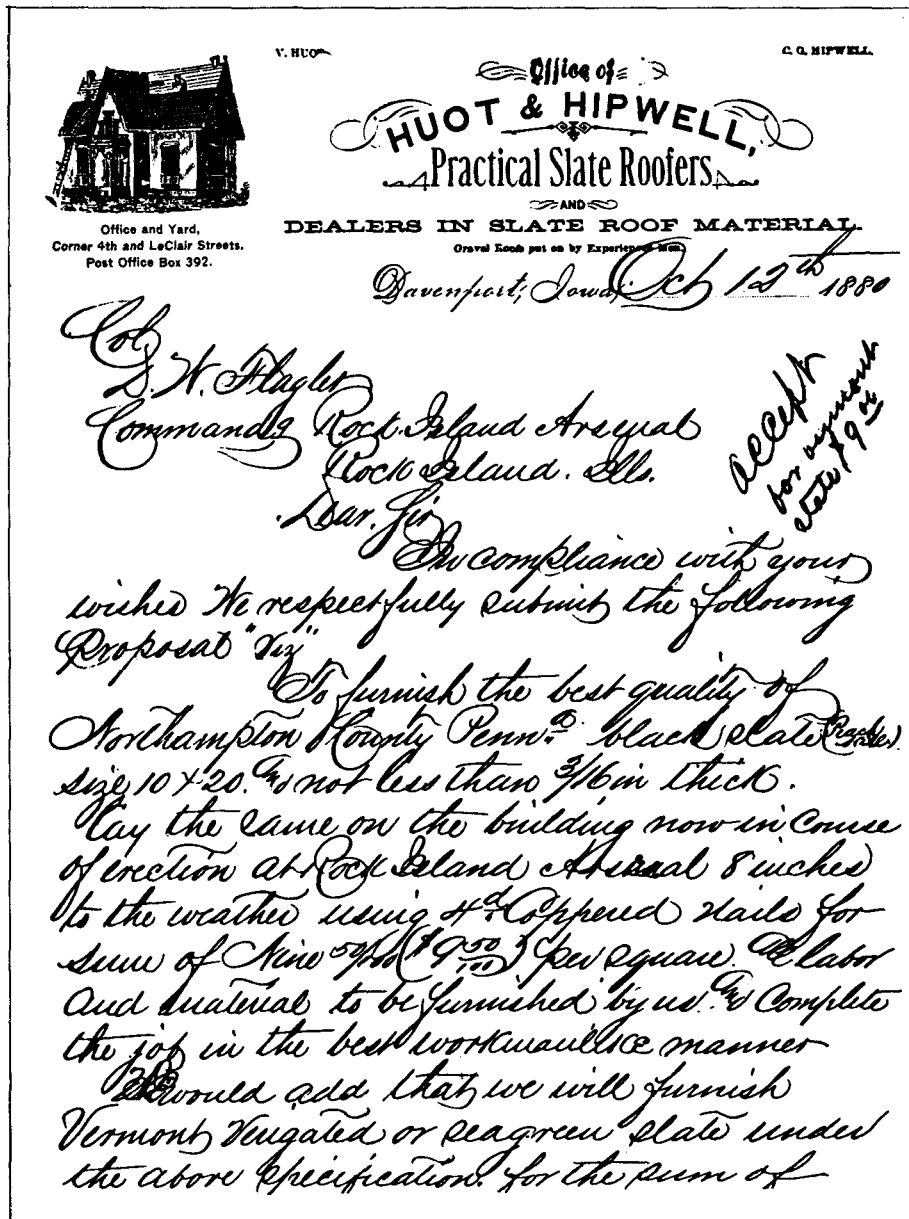 V. HUOT
C. G. HIPWELL.
Office of
HUOT & HIPWELL,
Practical Slate Roofers
AND
DEALERS IN SLATE ROOF MATERIAL.
Gravel Roofs put on by Experienced Men.
Office and Yard,
Corner 4th and LeClair Streets.
Post Office Box 392.
Davenport, Iowa, Oct 12th 1880
Col
D. W. Flagler
Commandg Rock Island Arsenal
Rock Island. Ills.
Dear Sir
accept
for vermont
slate $9 00
In compliance with your
wishes We respectfully submit the following
Proposal "Viz"
To furnish the best quality of
Northampton County Penna. black slate
size 10 x 20. & not less than 3/16 in thick.
lay the same on the building now in course
of erection at Rock Island Arsenal 8 inches
to the weather using 4d Coppered nails for
sum of Nine 50/100 ($9 50/100) per square. All labor
and material to be furnished by us. & Complete
the job in the best workmanlike manner
We would add that we will furnish
Vermont Verigated or seagreen slate under
the above specification. for the sum of